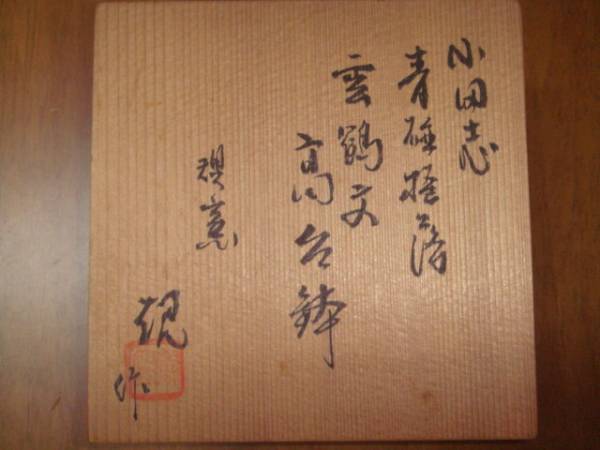 小田志
青磁掻落
雲鶴文
高台鉢
窯
作